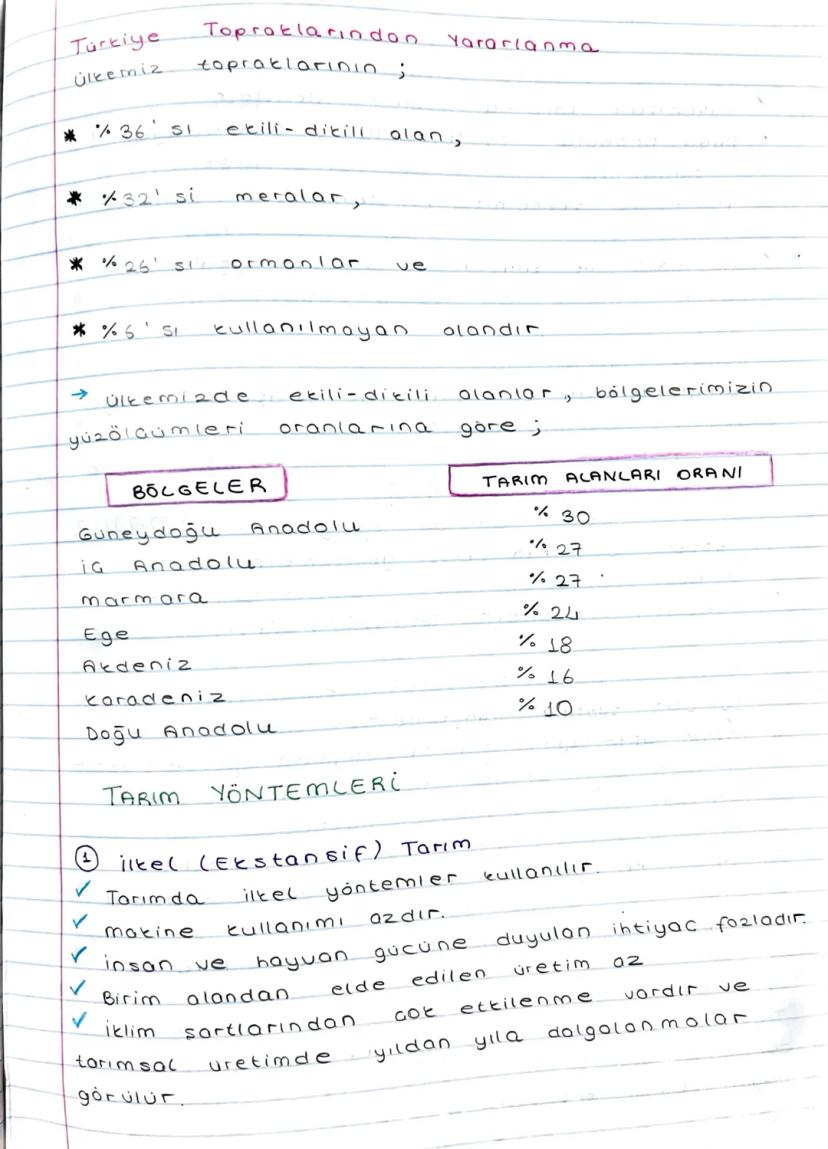 Türkiye Topraklarından Yararlanma
ülkemiz topraklarının ;
* %36' sı ekili-dikili alan,
* %32' si meralar,
* %26' sı ormanlar ve
* %6' sı kullanılmayan alandır
→ ülkemizde ekili-dikili alanlar, bölgelerimizin
yüzölçümleri oranlarına göre ;
BÖLGELER TARIM ALANLARI ORANI
Guneydoğu Anadolu % 30
iç Anadolu % 27
marmara % 27
Ege % 24
Akdeniz % 18
karadeniz % 16
Doğu Anadolu % 10
TARIM YÖNTEMLERİ
① ilkel (Ekstansif) Tarım
✓ Tarımda ilkel yöntemler kullanılır.
✓ makine kullanımı azdır.
✓ insan ve hayvan gücüne duyulan ihtiyac fazladır.
✓ Birim alandan elde edilen üretim az
✓ iklim sartlarından cok etkilenme vardır ve
tarımsal uretimde yıldan yıla dalgalanmalar
görülür.